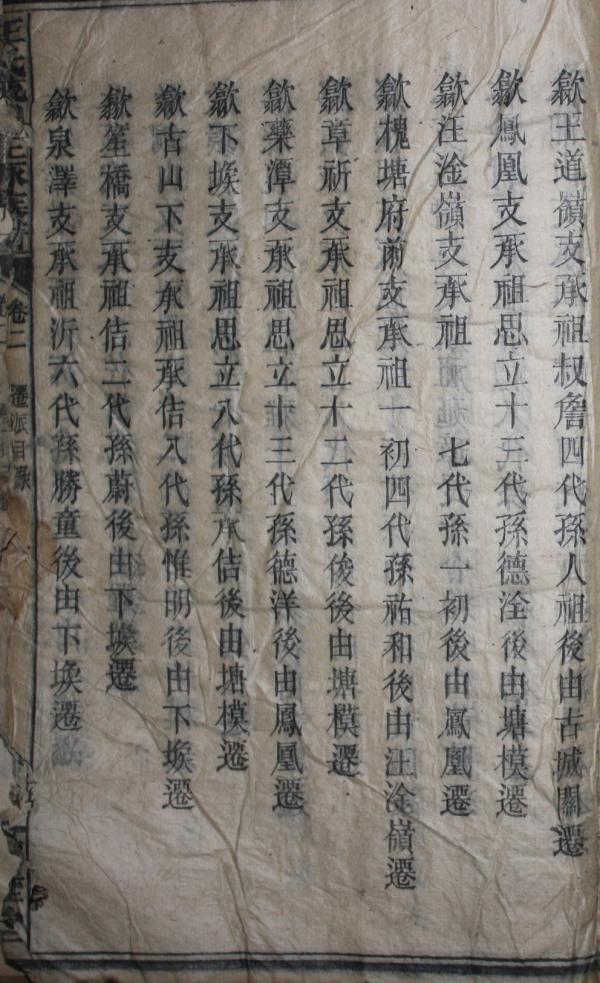 歙王道嶺支承祖叔詹四代孫人祖後由古城關遷
歙鳳凰支承祖思立十三代孫德淦後由塘模遷
歙汪淦嶺支承祖 七代孫一初後由鳳凰遷
歙槐塘府前支承祖一初四代孫祐和後由汪淦嶺遷
歙章祈支承祖思立十二代孫俊後由塘模遷
歙藥潭支承祖思立十三代孫德洋後由鳳凰遷
歙下堠支承祖思立八代孫承佶後由塘模遷
歙古山下支承祖承佶八代孫惟明後由下堠遷
歙笙橋支承祖佶二代孫蔚後由下堠遷
歙泉澤支承祖沂六代孫勝童後由下堠遷
卷二 遷派目錄